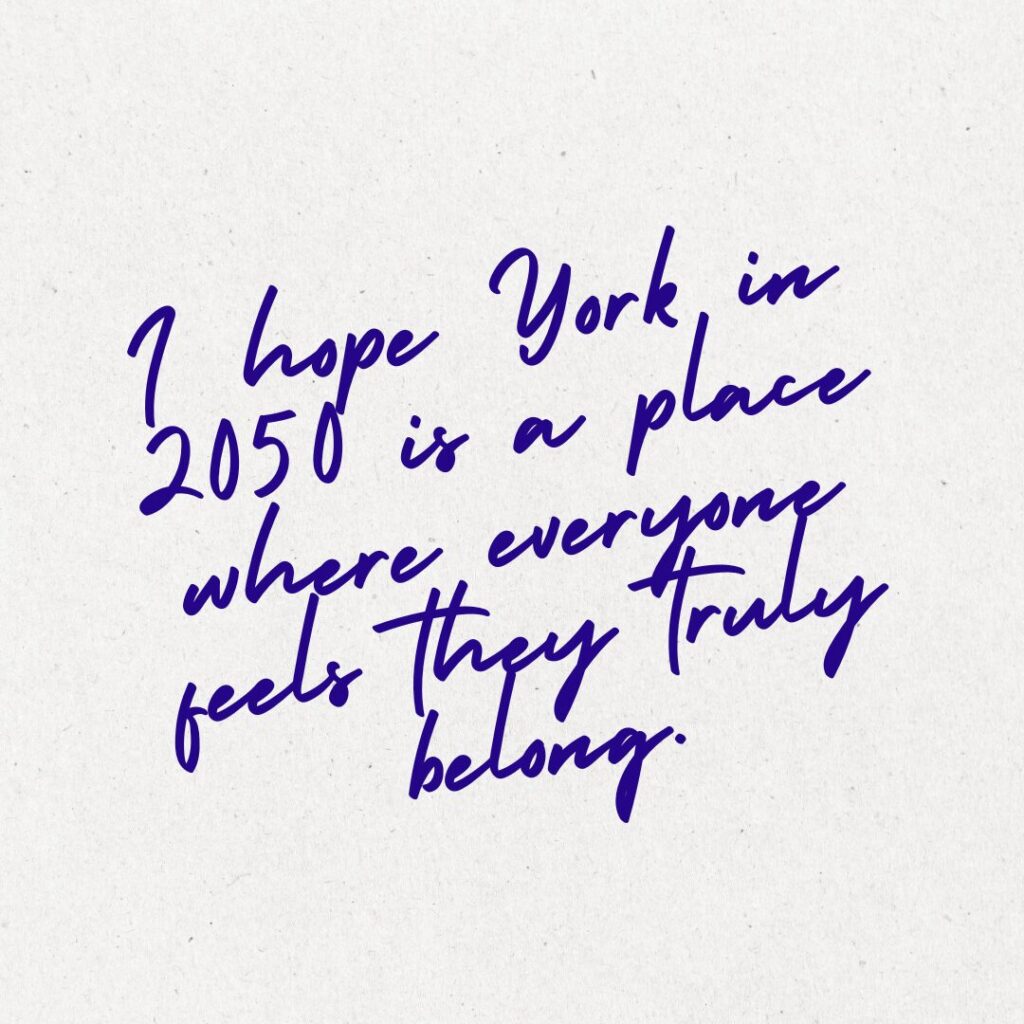 I hope York in
2050 is a place
where everyone
feels they truly
belong.